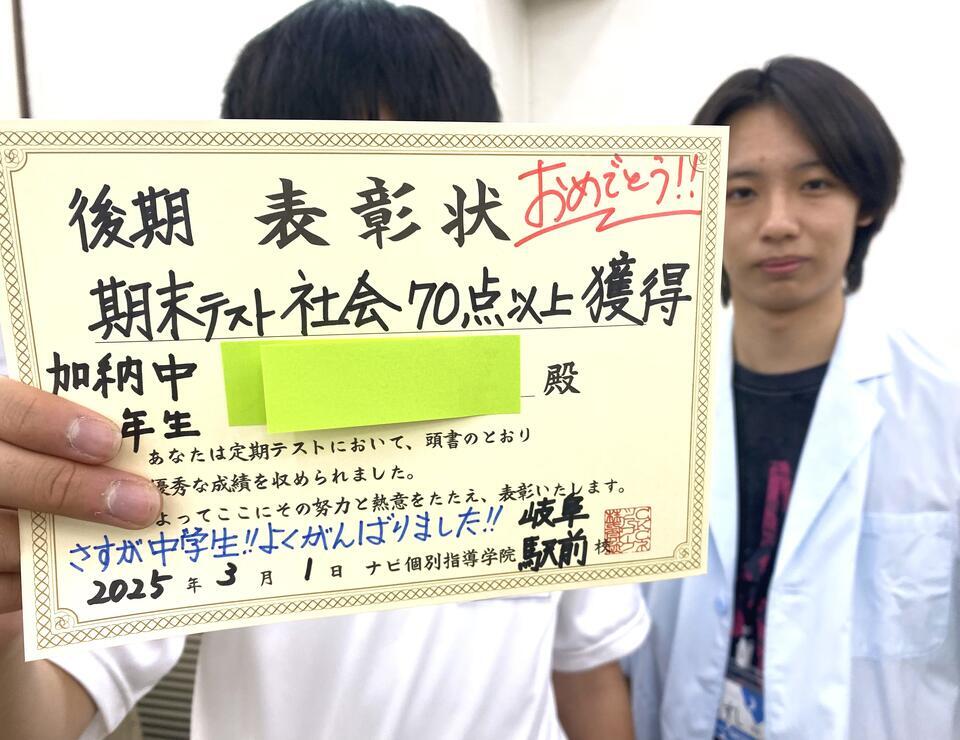 後期 表彰状 おめでとう!!
期末テスト社会70点以上獲得
加納中 殿
年生
あなたは定期テストにおいて、頭書のとおり
優秀な成績を収められました。
よってここにその努力と熱意をたたえ、表彰いたします。
さすが中学生!!よくがんばりました!!
岐阜
2025年3月1日 ナビ個別指導学院 駅前校